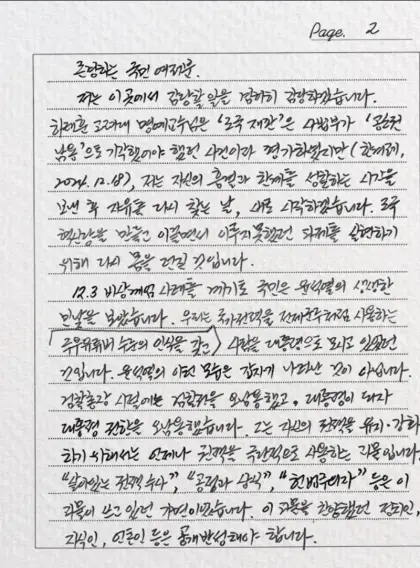 Page. 2
존경하는 국민 여러분.
저는 이곳에서 감당할 일을 겸허히 감당하겠습니다.
하태훈 고려대 명예교수님은 '조국 재판'은 사법부가 '공소권
남용'으로 기각했어야 했던 사건이라 평가하셨지만 (한겨레,
2024. 12. 18), 저는 자신의 흠결과 한계를 성찰하는 시간을
보낸 후 자유를 다시 찾는 날, 새로 시작하겠습니다. 조국
혁신당을 만들고 이끌면서 이루지 못했던 과제를 실현하기
위해 다시 몸을 던질 것입니다.
12.3 비상계엄 사태를 계기로 국민은 윤석열의 생생한
민낯을 보았습니다. 우리는 국가권력을 전제군주처럼 사용하는
극우유튜버 수준의 인식을 갖고 사람을 대통령으로 모시고 있었던
것입니다. 윤석열의 이런 모습은 갑자기 나타난 것이 아닙니다.
검찰총장 시절에는 검찰권을 오남용했고, 대통령이 되자
대통령 권한을 오남용했습니다. 그는 자신의 권력을 유지·강화
하기 위해서는 언제나 권력을 극단적으로 사용하는 괴물입니다.
"살아있는 권력 수사", "공정과 상식", "헌법주의자" 등은 이
괴물이 쓰고 있던 가면이었습니다. 이 괴물을 찬양했던 정치인,
지식인, 언론인 등은 공개 반성해야 합니다.